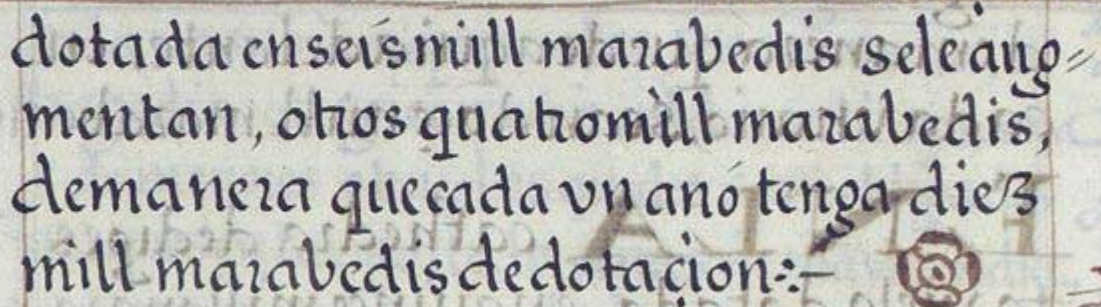 dotada en seis mill marabedis se le aug=
mentan, otros quatro mìll marabedis,
de manera que cada vn anó tenga diez
mill marabedis de dotaçion:~